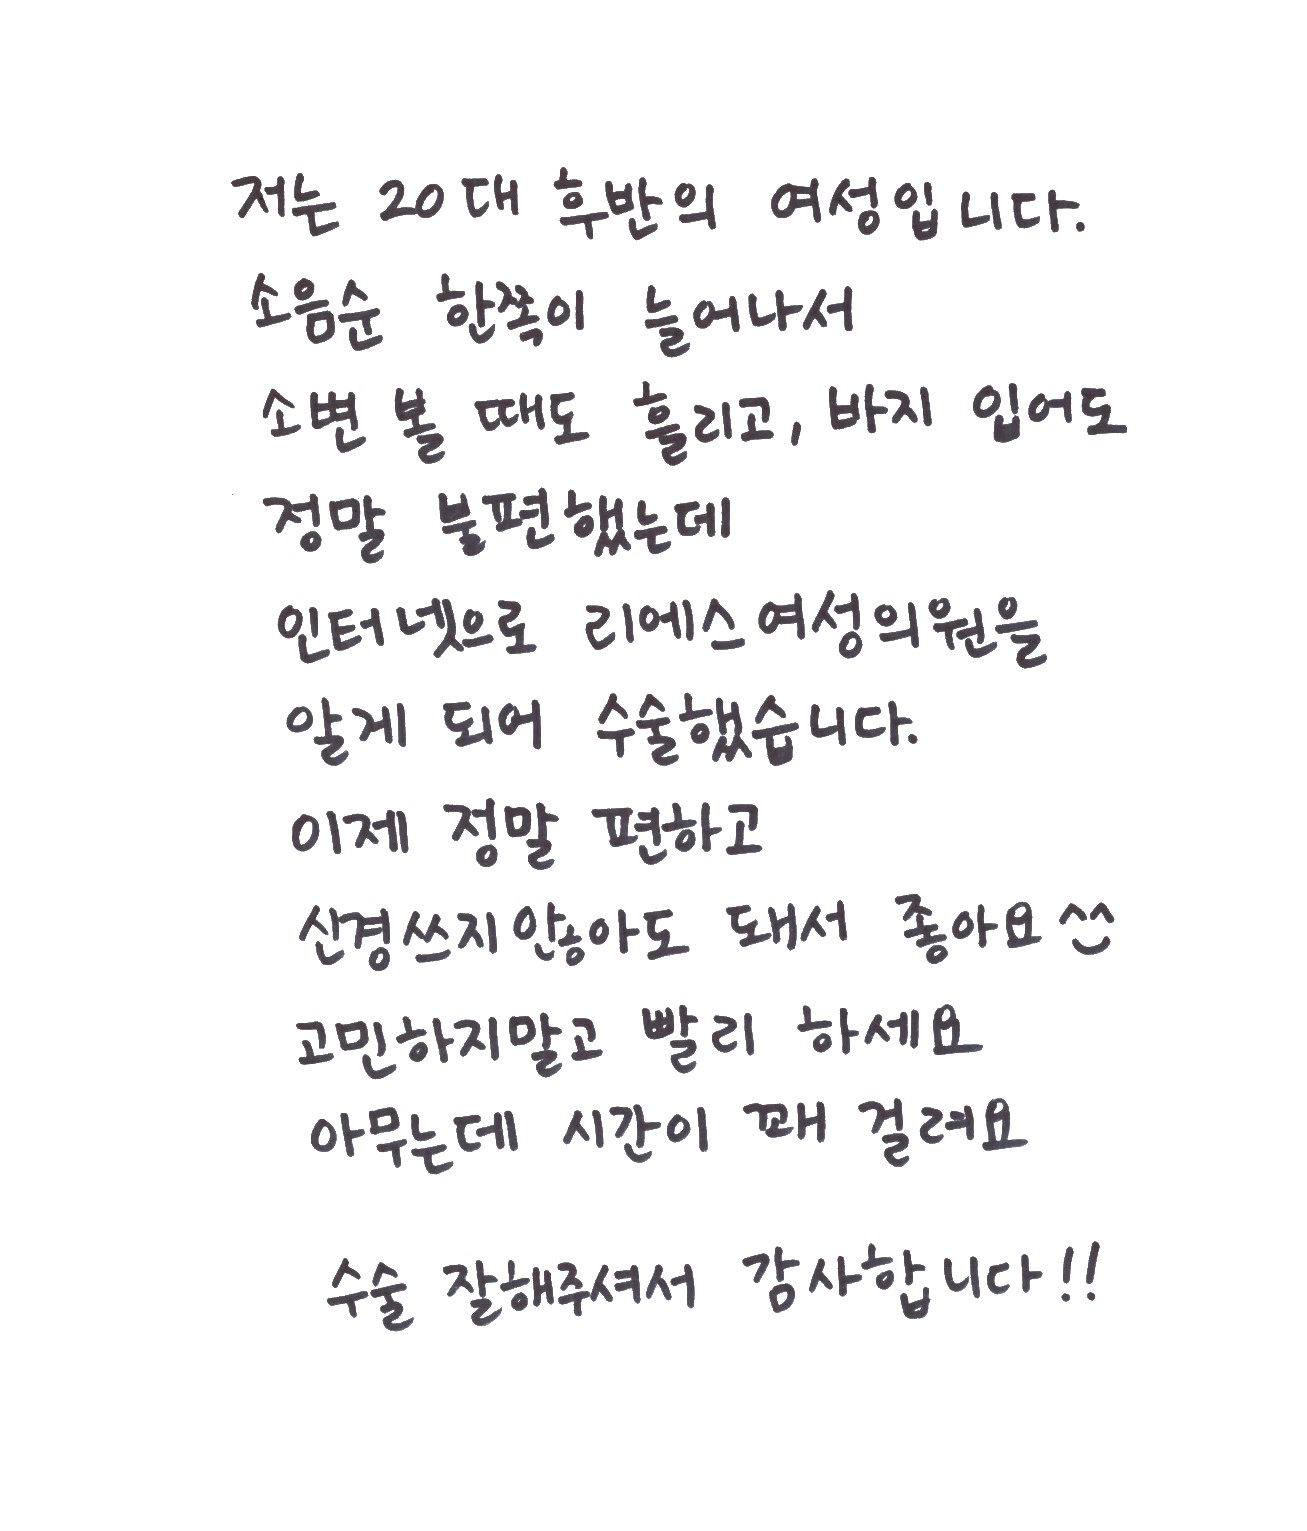 저는 20대 후반의 여성입니다.
소음순 한쪽이 늘어나서
소변 볼 때도 흘리고, 바지 입어도
정말 불편했는데
인터넷으로 리에스여성의원을
알게 되어 수술했습니다.
이제 정말 편하고
신경쓰지않아도 돼서 좋아요 ^^
고민하지말고 빨리 하세요
아무는데 시간이 꽤 걸려요
수술 잘해주셔서 감사합니다!!